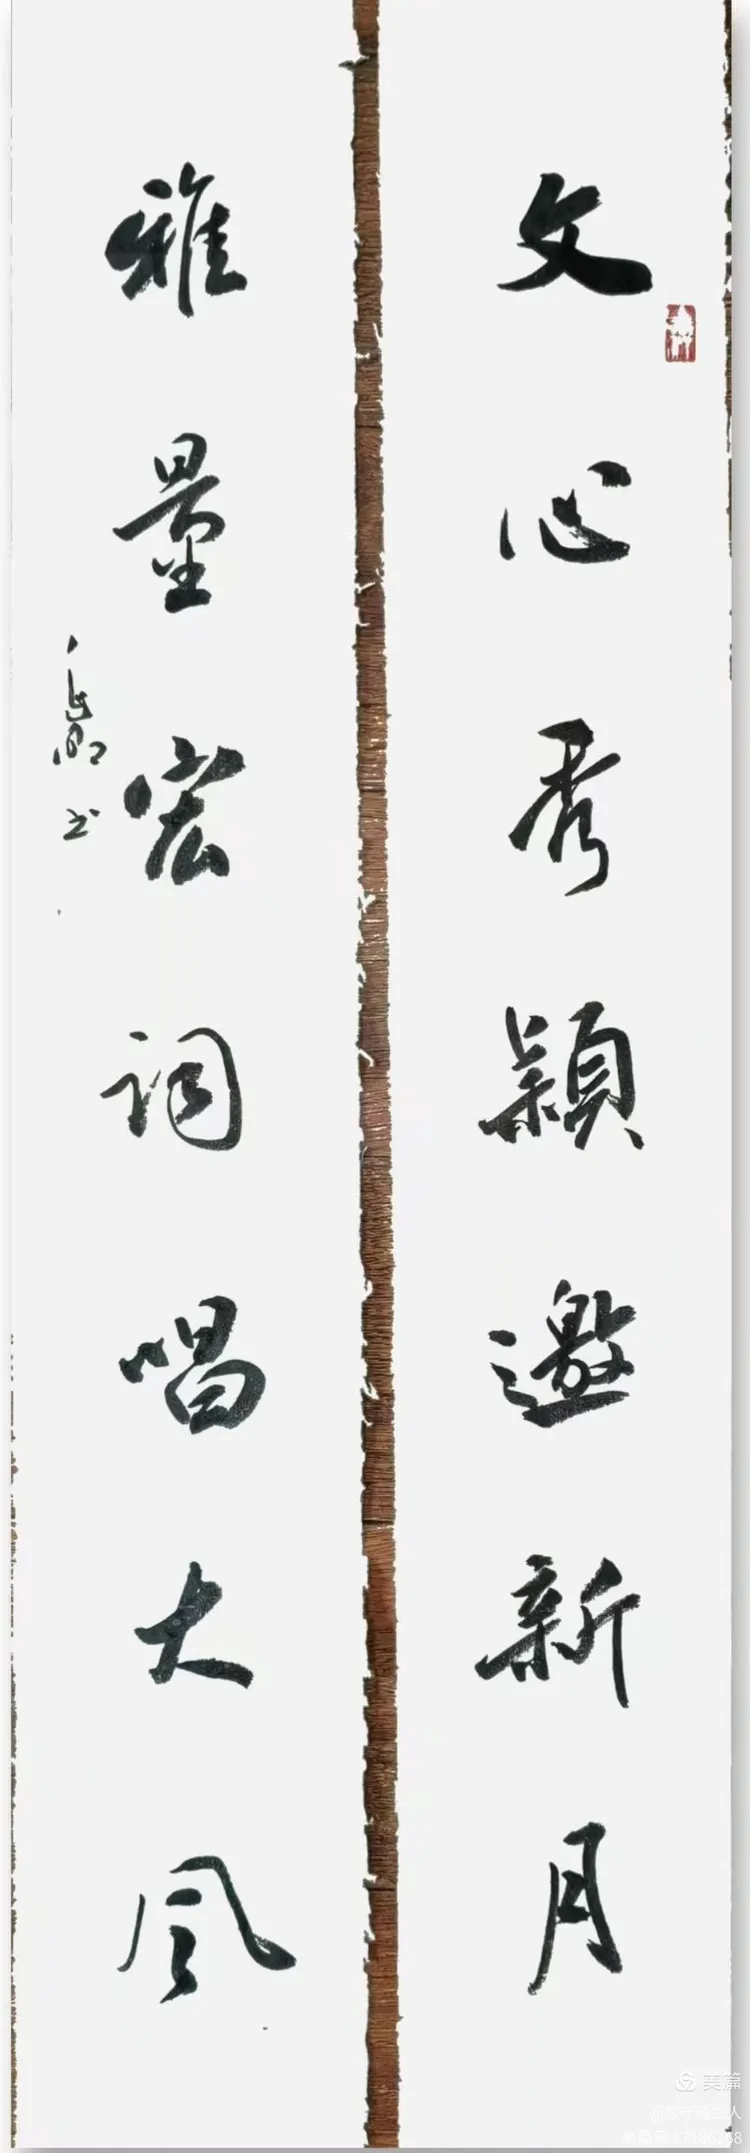 文心秀颖邀新月
雅量宏词唱大风
书
美篇